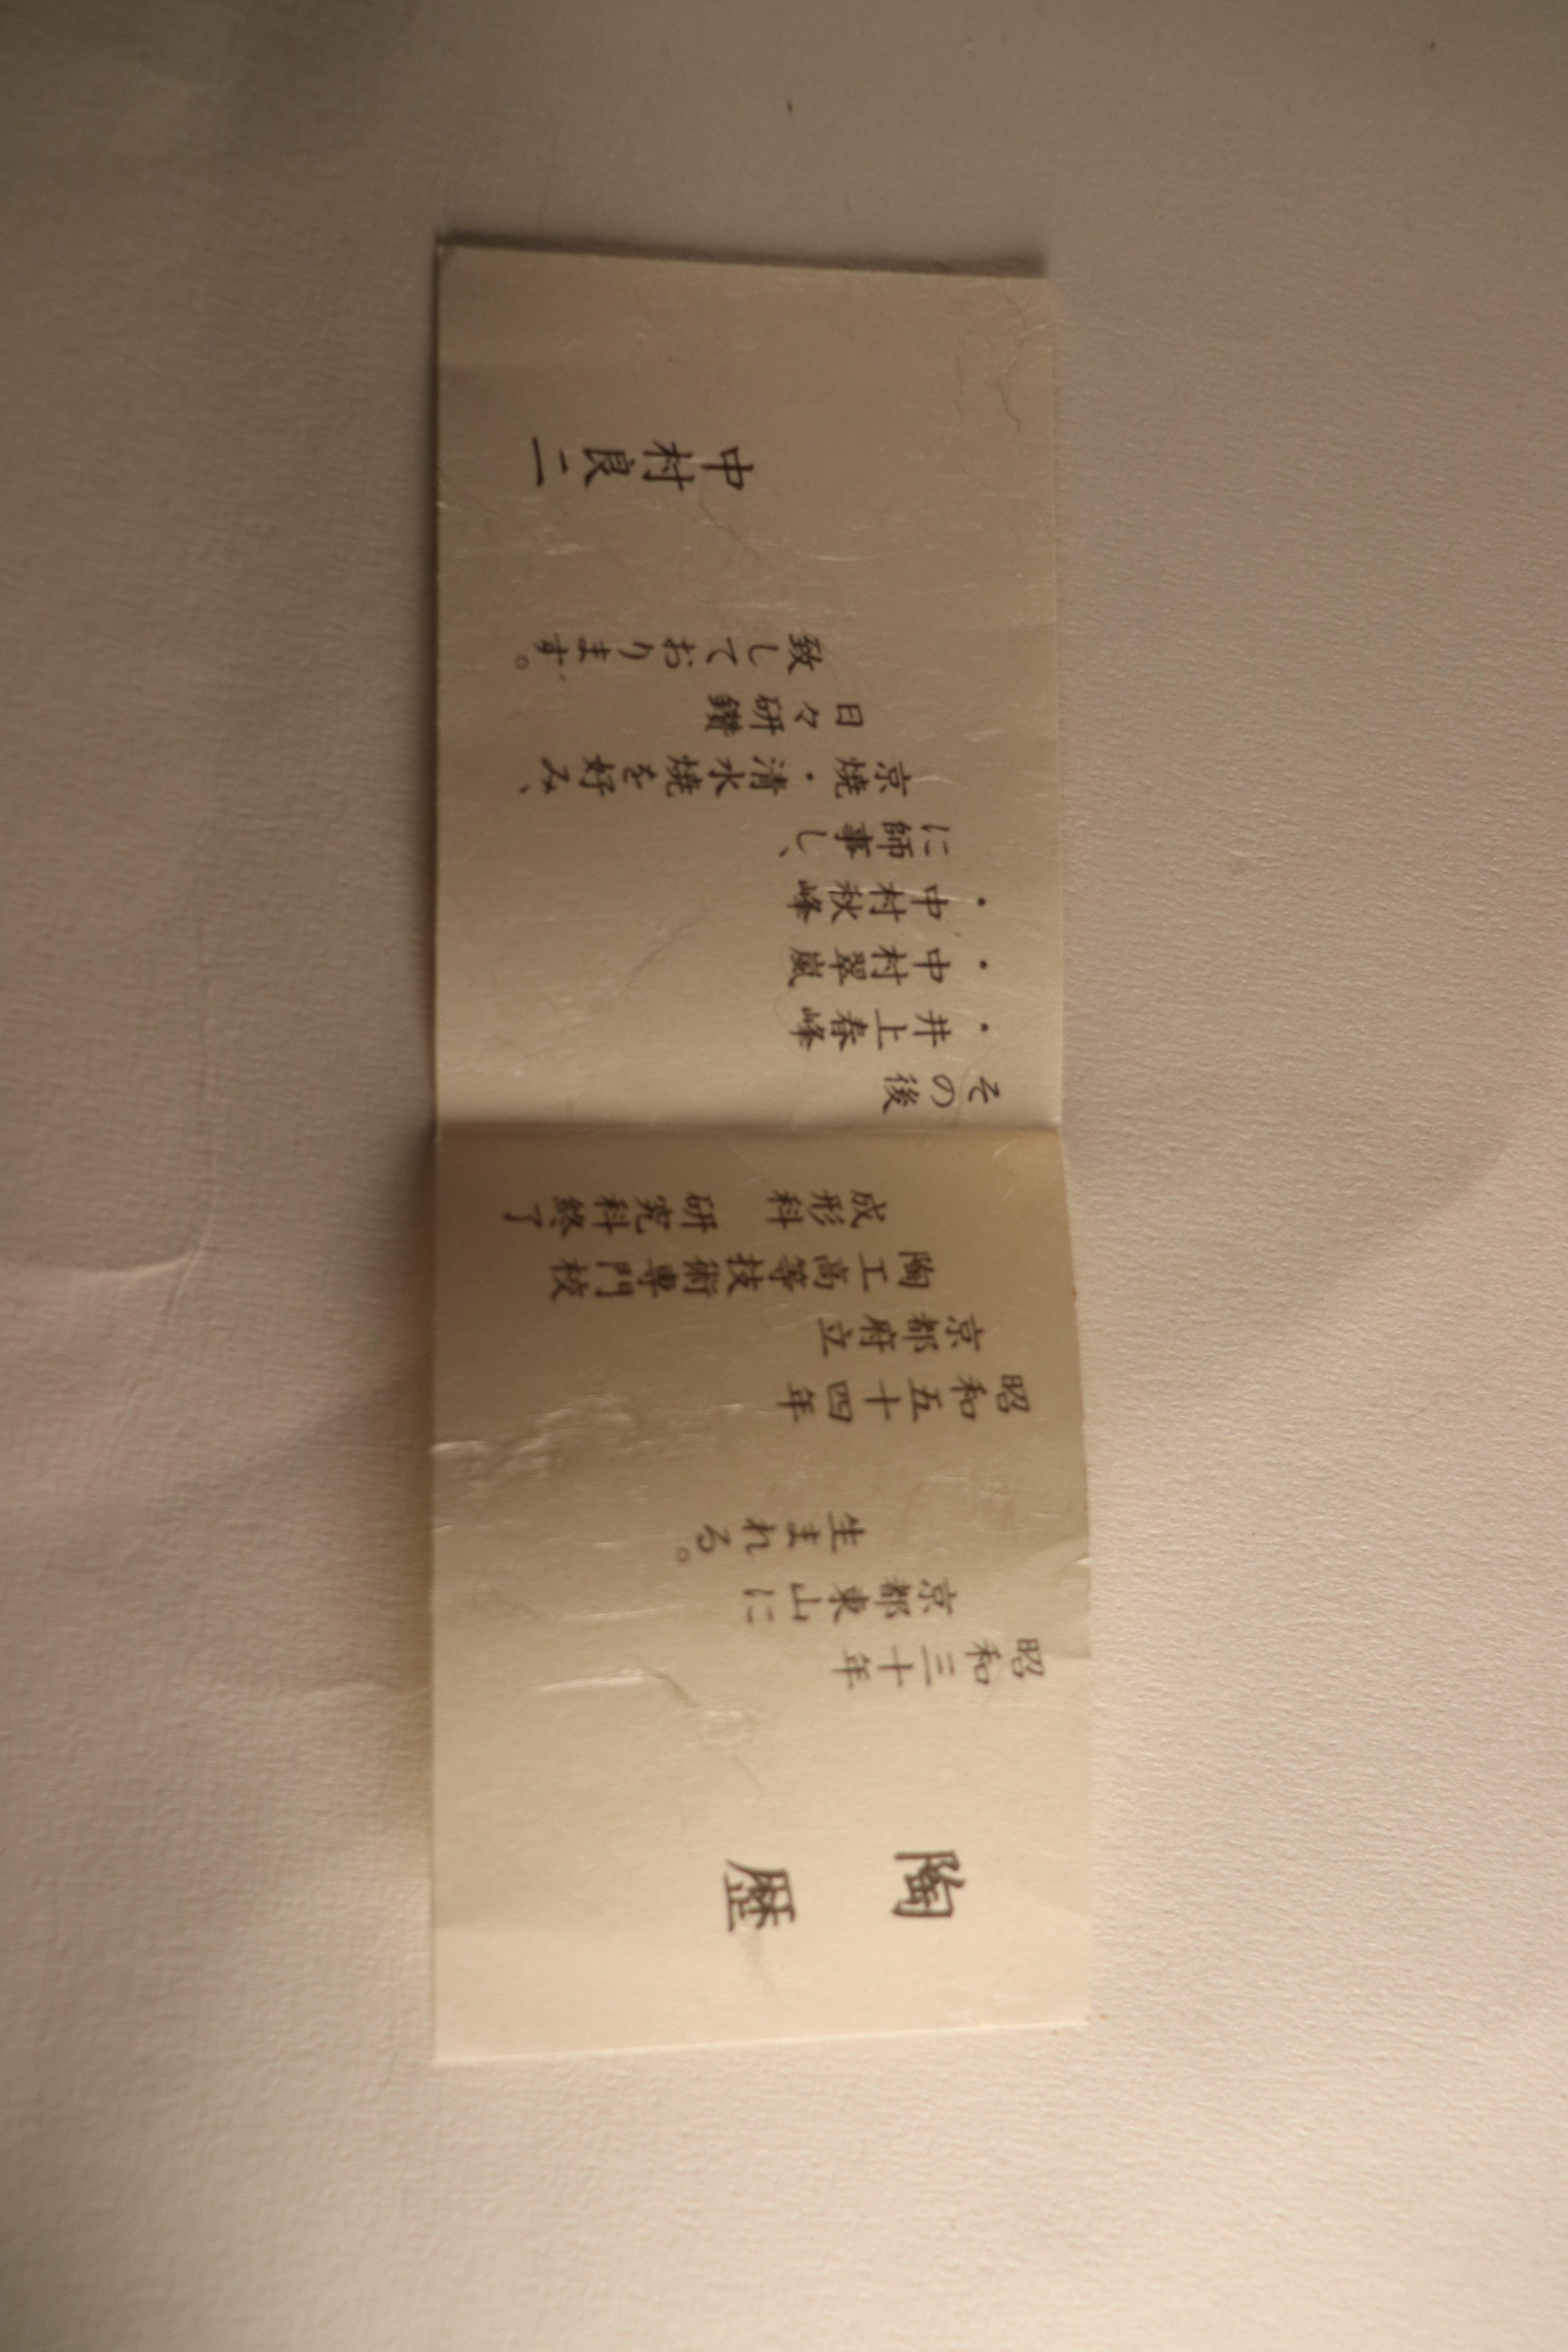 陶歴
昭和三十年
京都東山に
生まれる。
昭和五十四年
京都府立
陶工高等技術専門校
成形科　研究科終了
その後
・井上春峰
・中村翠嵐
・中村秋峰
に師事し、
京焼・清水焼を好み、
日々研鑽
致しております。
中村良二